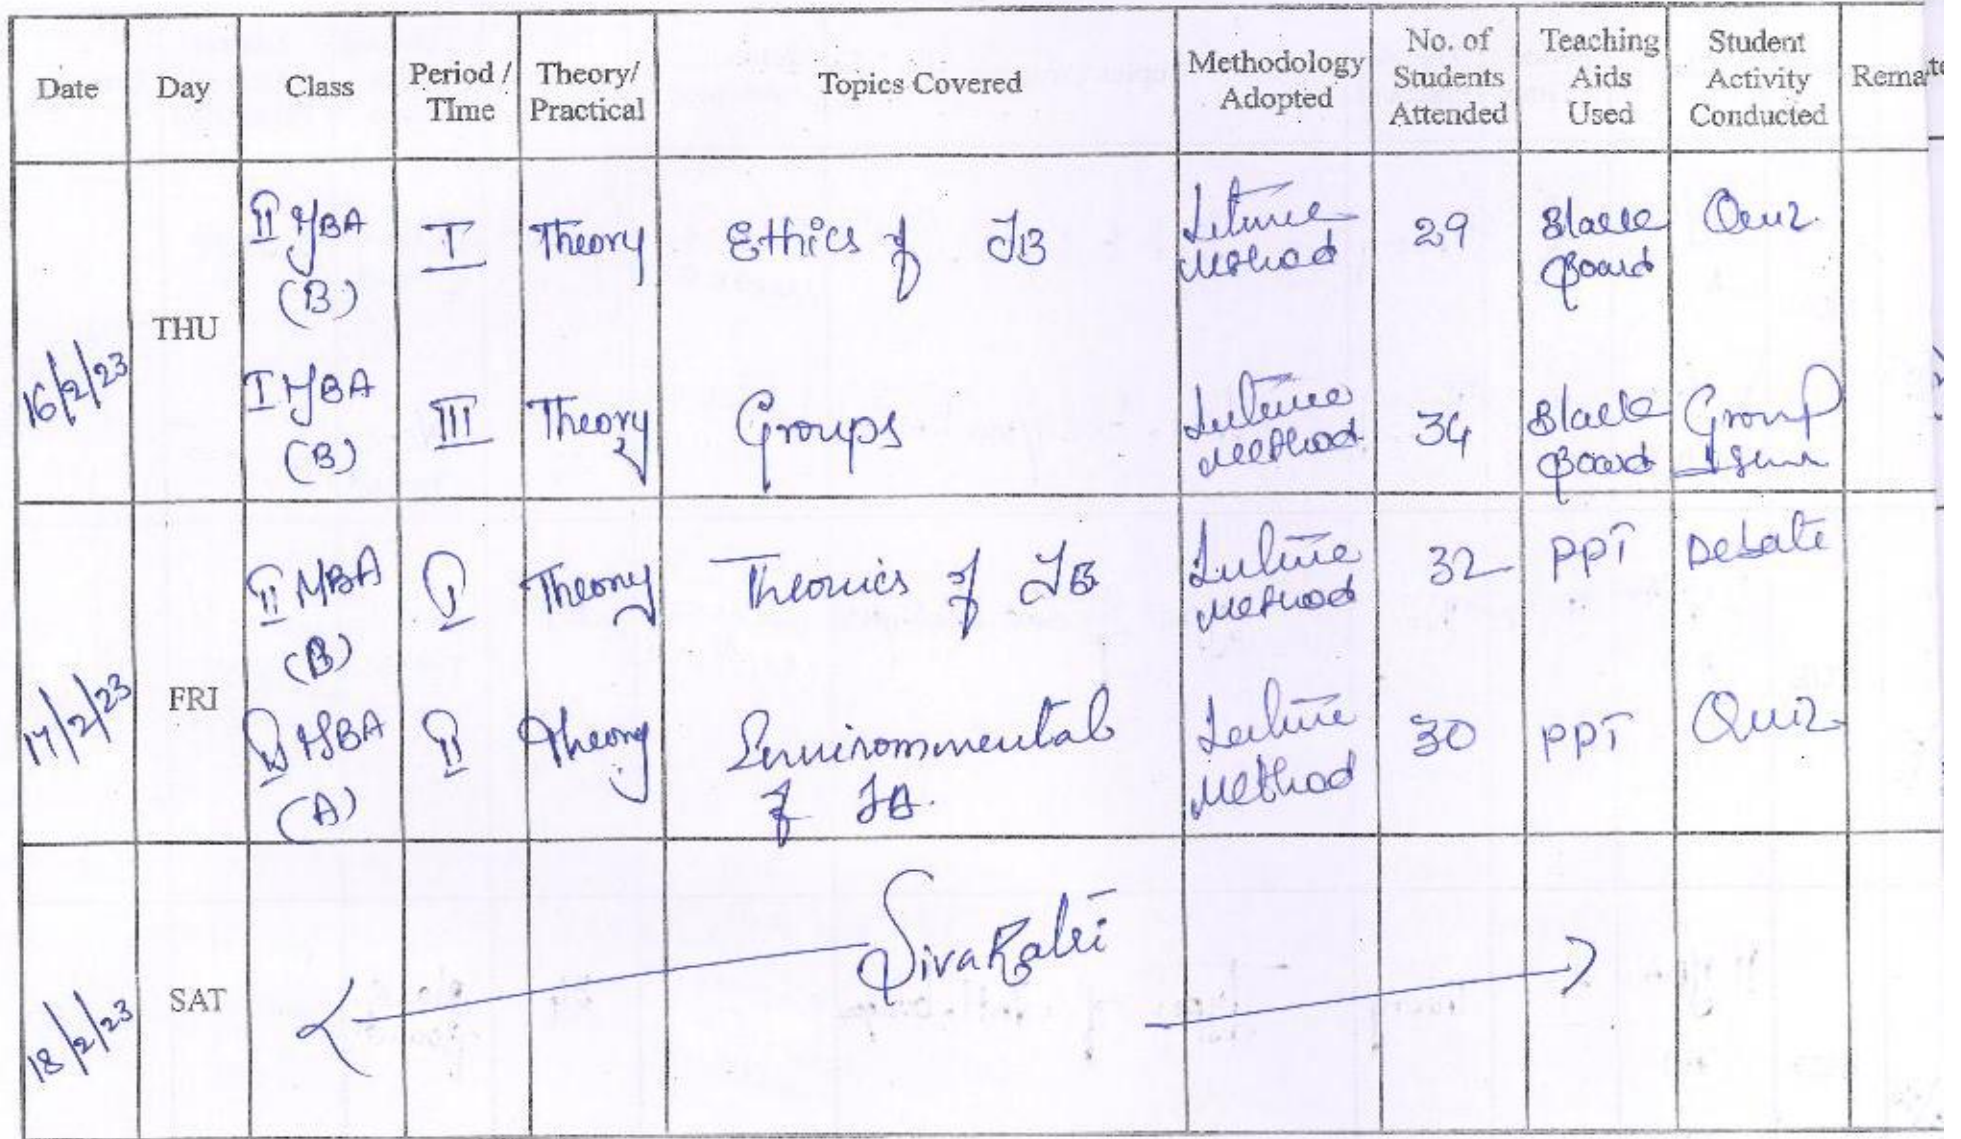 Date Day Class Period / TIme Theory/ Practical Topics Covered Methodology Adopted No. of Students Attended Teaching Aids Used Student Activity Conducted Rema
16/2/23 THU
II MBA (B) I Theory Ethics of IB Lecture Method 29 Black Board Quiz
I MBA (B) III Theory Groups Lecture Method 34 Black Board Group
17/2/23 FRI
II MBA (B) I Theory Theories of IB Lecture Method 32 PPT Debate
II MBA (A) II Theory Environmental of IB Lecture Method 30 PPT Quiz
18/2/23 SAT
SivaRatri